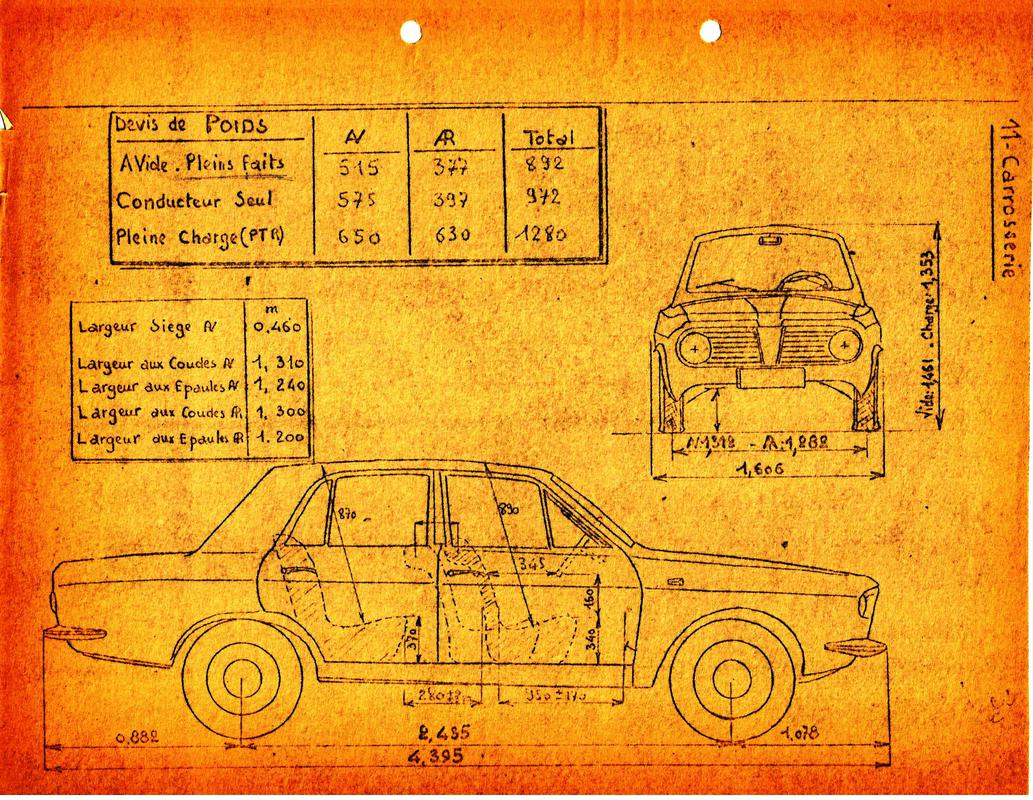 Devis de POIDS AV AR Total
A Vide. Pleins faits 515 377 892
Conducteur Seul 575 397 972
Pleine Charge (PTR) 650 630 1280
11- Carrosserie
m
Largeur Siege AV 0.460
Largeur aux Coudes AV 1, 310
Largeur aux Epaules AV 1, 240
Largeur aux Coudes AR 1, 300
Largeur aux Epaules AR 1. 200
Vide: 1,461 - Charge: 1,353
AV 1,312 - AR: 1,282
1,606
870
890
345
160
370
340
0,882
2,435
1,078
4,395